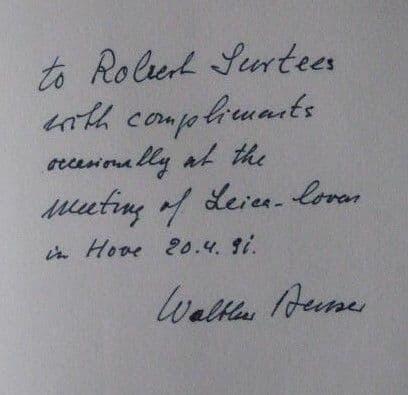 to Robert Surtees
with compliments
occasionally at the
Meeting of Leica-lovers
in Hove 20.4.91.
Walther Benser